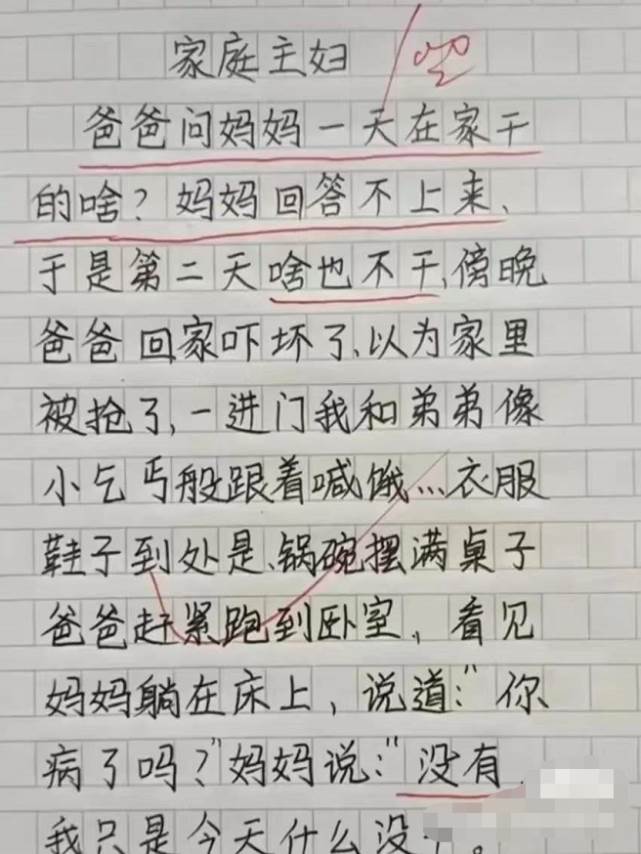 家庭主妇
爸爸问妈妈一天在家干
的啥?妈妈回答不上来、
于是第二天啥也不干,傍晚
爸爸回家吓坏了,以为家里
被抢了,一进门我和弟弟像
小乞丐般跟着喊饿...衣服
鞋子到处是、锅碗摆满桌子
爸爸赶紧跑到卧室,看见
妈妈躺在床上,说道:"你
病了吗?"妈妈说:"没有,
我只是今天什么没